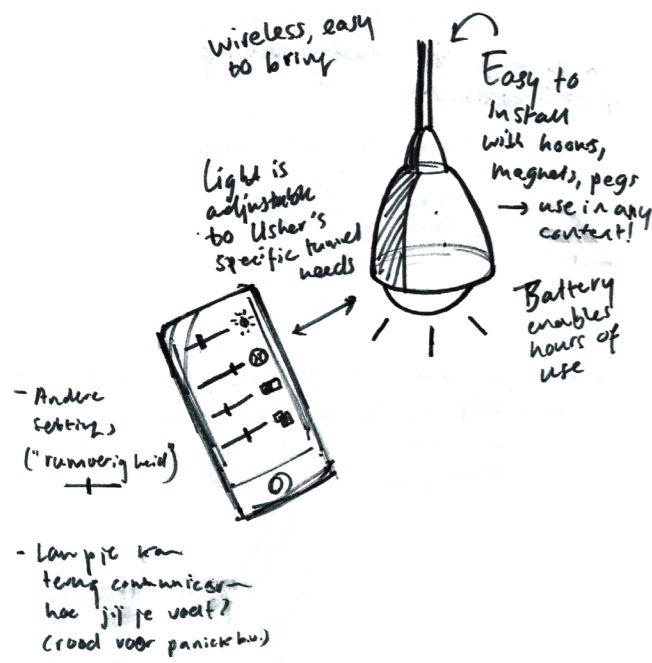 wireless, easy
to bring
Easy to
install
with hooks,
magnets, pegs
→ use in any
context!
Light is
adjustable
to Usher's
specific tunnel
needs
Battery
enables
hours of
use
- Andere
settings
("rumoerigheid")
- Lampje kan
terug communiceren
hoe jij je voelt?
(rood voor paniek b.v.)